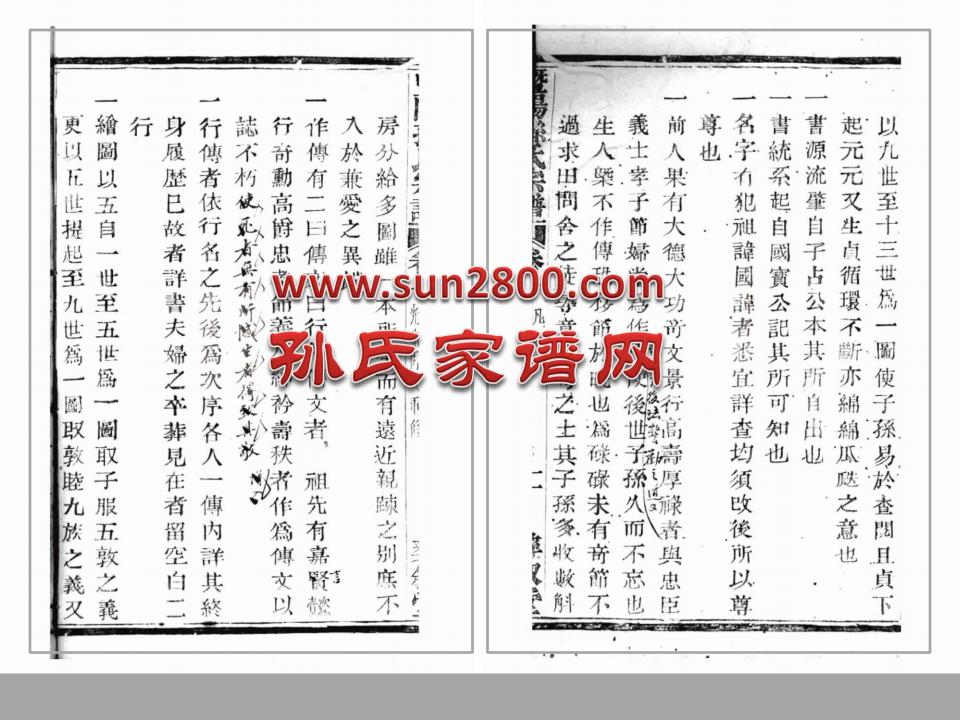 以九世至十三世爲一圖使子孫易於查閱且貞下
起元元又生貞循環不斷亦綿綿瓜瓞之意也
一書源流肇自子占公本其所自出也
一書統系起自國寶公記其所可知也
一名字有犯祖諱國諱者悉宜詳查均須改後所以尊
尊也
一前人果有大德大功奇文景行高壽厚祿者與忠臣
義士孝子節婦當爲作 後世子孫久而不忘也
生人槩不作傳 移節於 也爲碌碌未有奇節不
過求田問舍之徒 意 之士其子孫多收數斛
房分給多圖雖 本 而有遠近親疎之别庶不
入於兼愛之異
一作傳有二曰傳 曰行 文者 祖先有嘉賢懿
行奇勳高爵忠孝節義 衿壽秩者作爲傳文以
誌不朽使死者無有所 生者得
一行傳者依行名之先後爲次序各人一傳內詳其終
身履歴已故者詳書夫婦之卒葬見在者留空白二
行
一繪圖以五自一世至五世爲一圖取子服五敦之義
更以五世提起至九世爲一圖取敦睦九族之義又
www.sun2800.com
孙氏家谱网